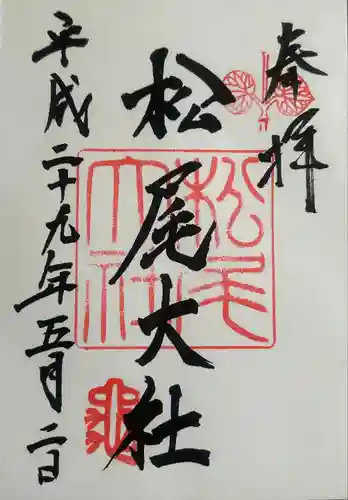 奉拝
松尾大社
松尾大社
平成二十九年五月二日